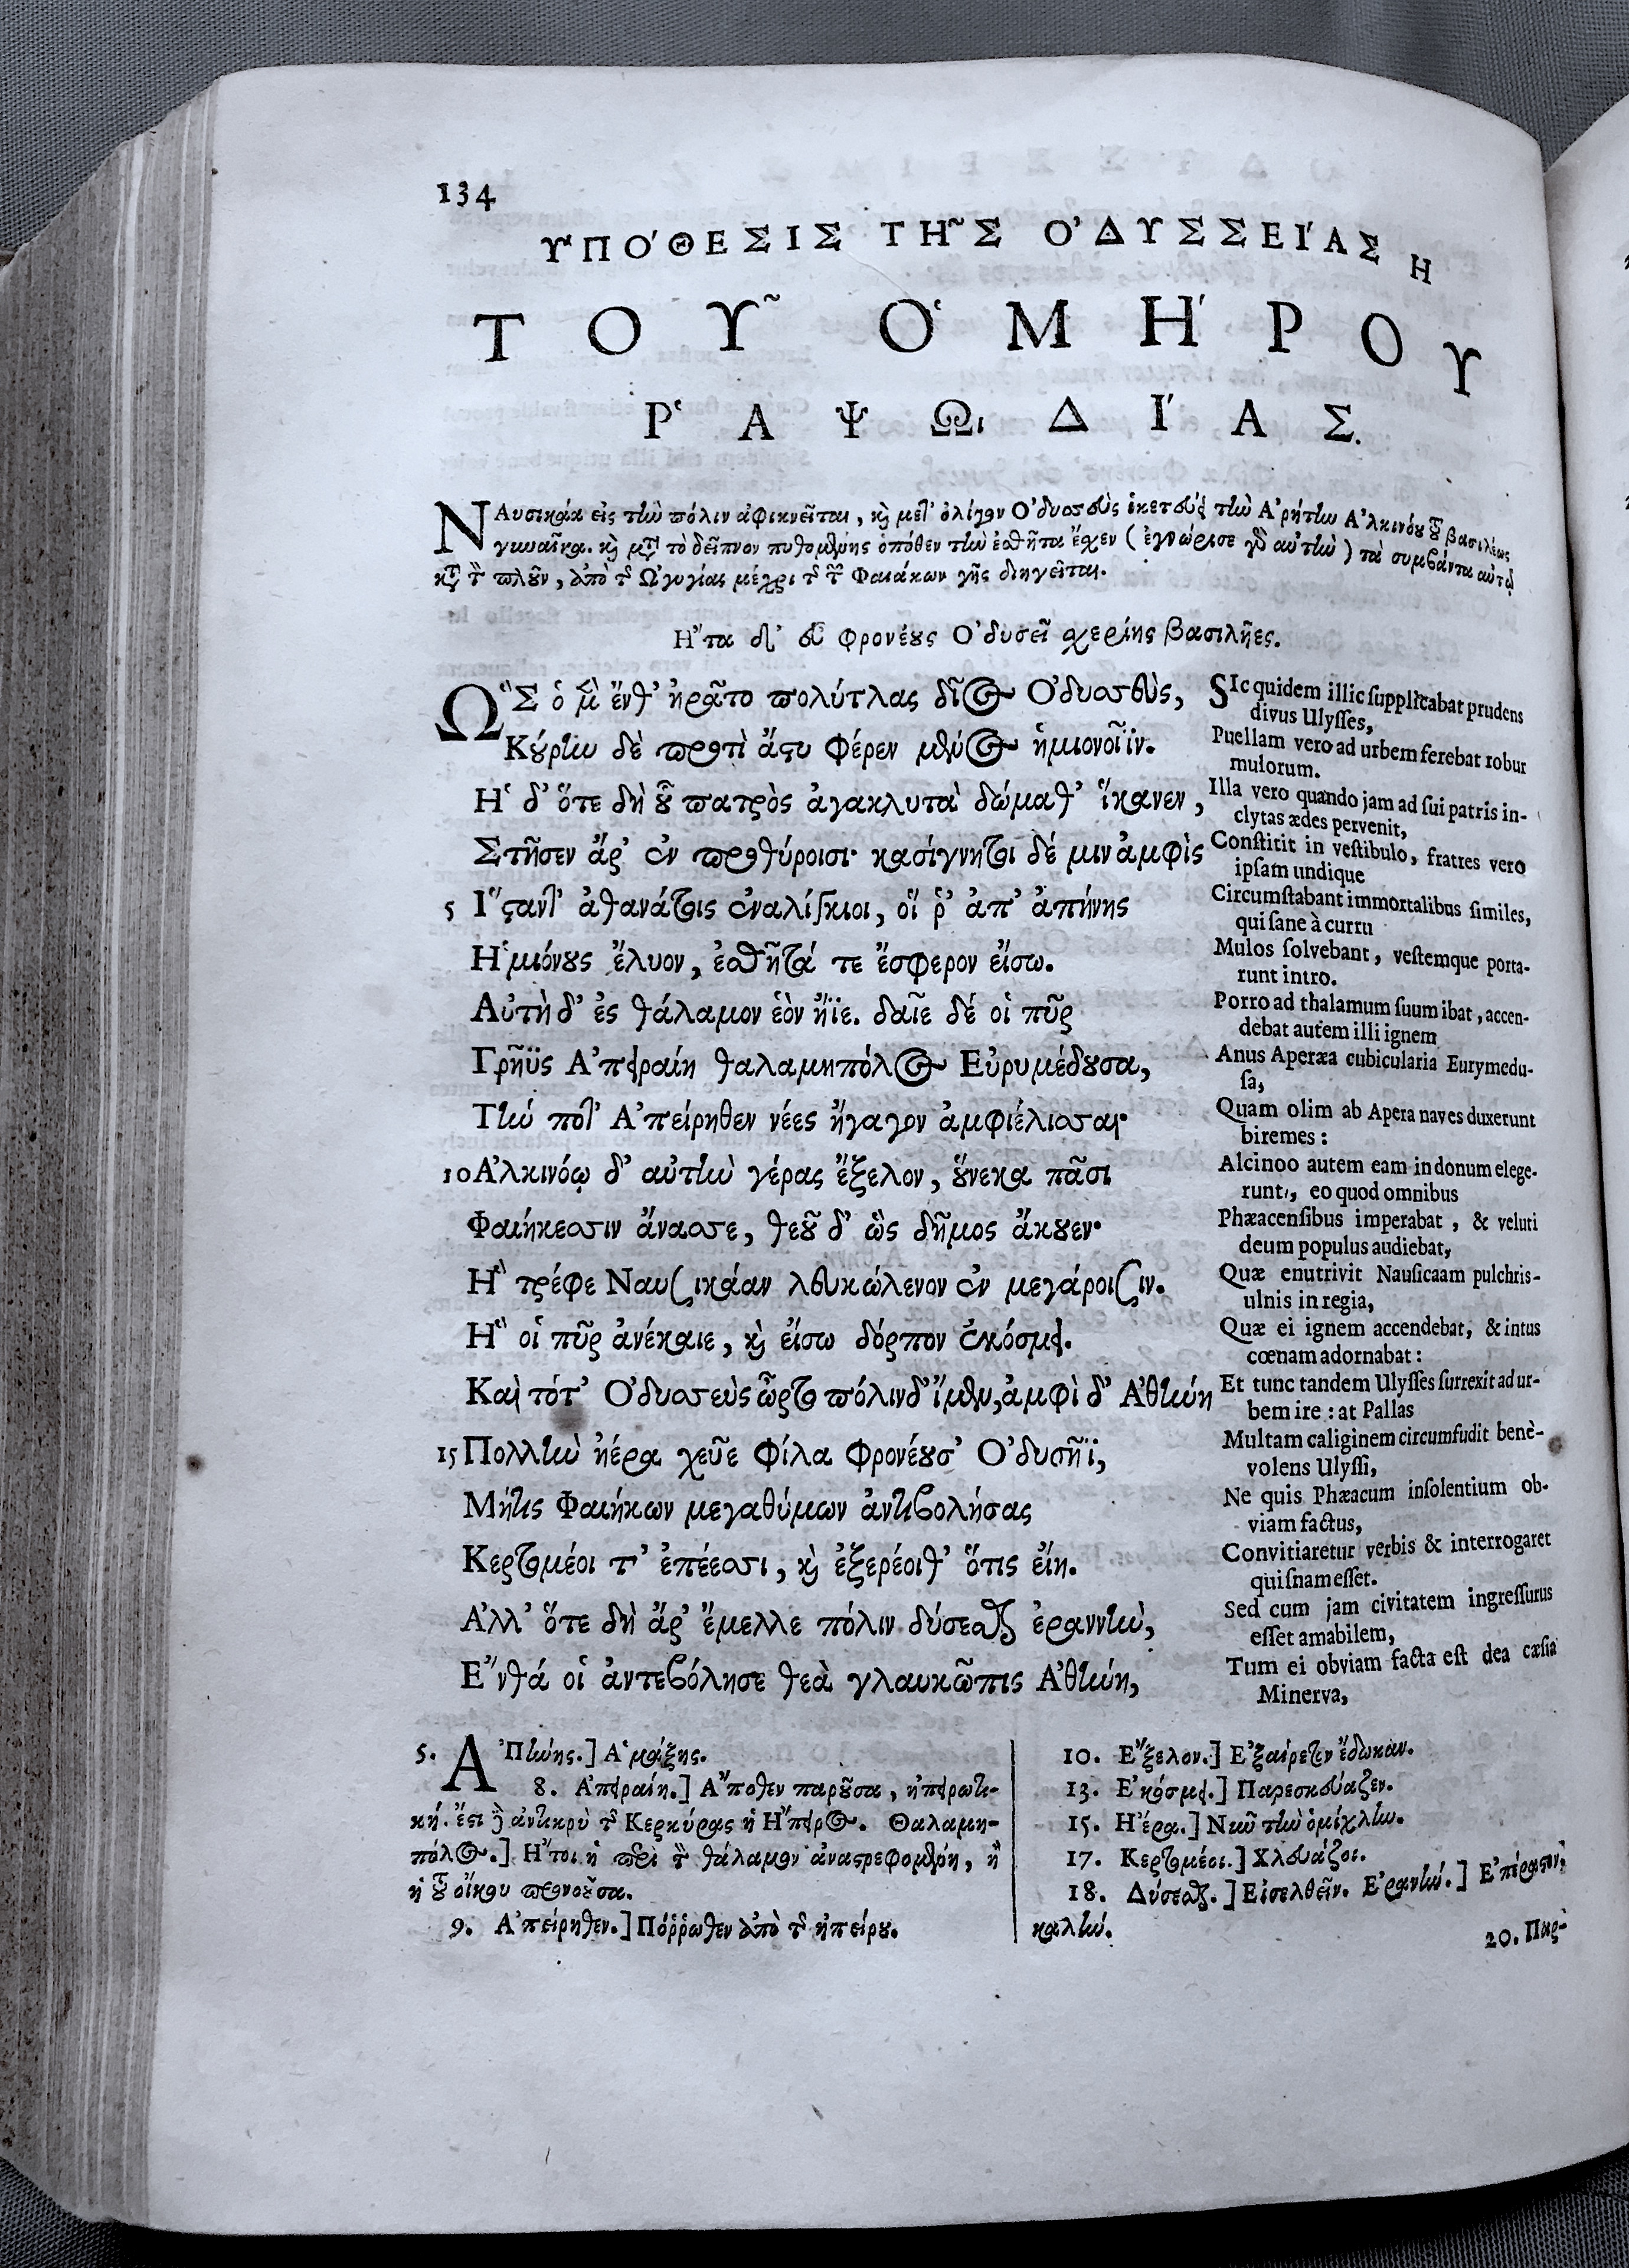 134
ὙΠΟ´ΘΕΣΙΣ ΤΗ῀Σ Ο᾿ΔΥΣΣΕΙ´ΑΣ Η
ΤΟΥ῀ Ὁ ΜΗ´ΡΟΥ
Ῥ Α Ψ Ωι Δ Ι´ Α Σ.
ΝΑυσικάα εἰς τὴν πόλιν ἀφικνεῖται, καὶ μετ' ὀλίγον Ὀδυσσεὺς ἱκετεύει τὴν Ἀρήτην Ἀλκινόου τοῦ βασιλέως
γυναῖκα. καὶ μετὰ τὸ δεῖπνον πυθομένης ὁπόθεν τὴν ἐσθῆτα ἔχεν (ἐγνώρισε γὰρ αὐτὴν) τὰ συμβάντα αὐτῷ
κατὰ τὸν πλοῦν, ἀπὸ τῆς Ὠγυγίας μέχρι τῆς τῶν Φαιάκων γῆς διηγεῖται.
Ἦτα δ' εὖ φρονέους Ὀδυσεῖ χερίης βασιλῆες.
ὭΣ ὁ μὲν ἔνθ' ἠρᾶτο πολύτλας δῖος Ὀδυσσεὺς,
Κούρην δὲ προτὶ ἄστυ φέρεν μένος ἡμιονοῖϊν.
Ἡ δ' ὅτε δὴ οὗ πατρὸς ἀγακλυτὰ δώμαθ' ἵκανεν,
Στῆσεν ἄρ' ἐν προθύροισι· κασίγνητοι δέ μιν ἀμφὶς
5 Ἵσταντ' ἀθανάτοις ἐναλίγκιοι, οἵ ῥ' ἀπ' ἀπήνης
Ἡμιόνους ἔλυον, ἐσθῆτά τε ἔσφερον εἴσω.
Αὐτὴ δ' ἐς θάλαμον ἑὸν ἤϊε. δαῖε δέ οἱ πῦρ
Γρῆϋς Ἀπειραίη θαλαμηπόλος Εὐρυμέδουσα,
Τήν ποτ' Ἀπείρηθεν νέες ἤγαγον ἀμφιέλισσαι·
10 Ἀλκινόῳ δ' αὐτὴν γέρας ἔξελον, οὕνεκα πᾶσι
Φαιήκεσσιν ἄνασσε, θεοῦ δ' ὣς δῆμος ἄκουεν·
Ἣ τρέφε Ναυσικάαν λευκώλενον ἐν μεγάροισιν.
Ἥ οἱ πῦρ ἀνέκαιε, καὶ εἴσω δόρπον ἐκόσμει.
Καὶ τότ' Ὀδυσσεὺς ὦρτο πόλινδ' ἴμεν, ἀμφὶ δ' Ἀθήνη
15 Πολλὴν ἠέρα χεῦε φίλα φρονέουσ' Ὀδυσῆϊ,
Μήτις Φαιήκων μεγαθύμων ἀντιβολήσας
Κερτομέοι τ' ἐπέεσσι, καὶ ἐξερέοιθ' ὅτις εἴη.
Ἀλλ' ὅτε δὴ ἄρ' ἔμελλε πόλιν δύσεσθαι ἐραννὴν,
Ἔνθά οἱ ἀντεβόλησε θεὰ γλαυκῶπις Ἀθήνη,
SIc quidem illic supplicabat prudens
divus Ulysses,
Puellam vero ad urbem ferebat robur
mulorum.
Illa vero quando jam ad sui patris in-
clytas ædes pervenit,
Constitit in vestibulo, fratres vero
ipsam undique
Circumstabant immortalibus similes,
qui sane à curru
Mulos solvebant, vestemque porta-
runt intro.
Porro ad thalamum suum ibat, accen-
debat autem illi ignem
Anus Aperæa cubicularia Eurymedu-
sa,
Quam olim ab Apera naves duxerunt
biremes:
Alcinoo autem eam in donum elege-
runt, eo quod omnibus
Phæacensibus imperabat, & veluti
deum populus audiebat,
Quæ enutrivit Nausicaam pulchris-
ulnis in regia,
Quæ ei ignem accendebat, & intus
cœnam adornabat:
Et tunc tandem Ulysses surrexit ad ur-
bem ire: at Pallas
Multam caliginem circumfudit benè-
volens Ulyssi,
Ne quis Phæacum insolentium ob-
viam factus,
Convitiaretur verbis & interrogaret
quisnam esset.
Sed cum jam civitatem ingressurus
esset amabilem,
Tum ei obviam facta est dea cæsia
Minerva,
5. ἈΠήνης.] Ἁμάξης.
8. Ἀπειραίη.] Ἄποθεν παροῦσα, ἠπειρωτι-
κή. ἔστι γὰρ ἀντικρὺ τῆς Κερκύρας ἡ Ἤπειρος. Θαλαμη-
πόλος.] Ἤτοι ἡ περὶ τὸν θάλαμον ἀναστρεφομένη, ἢ
ἡ τοῦ οἴκου προνοοῦσα.
9. Ἀπείρηθεν.] Πόῤῥωθεν ἀπὸ τῆς ἠπείρου.
10. Ἔξελον.] Ἐξαίρετον ἔδωκαν.
13. Ἐκόσμει.] Παρεσκεύαζεν.
15. Ἠέρα.] Νῦν τὴν ὁμίχλην.
17. Κερτομέοι.] Χλευάζοι.
18. Δύσεσθαι.] Εἰσελθεῖν. Ἐρανήν.] Ἐπέραστον,
καλήν.
20. Παρ-